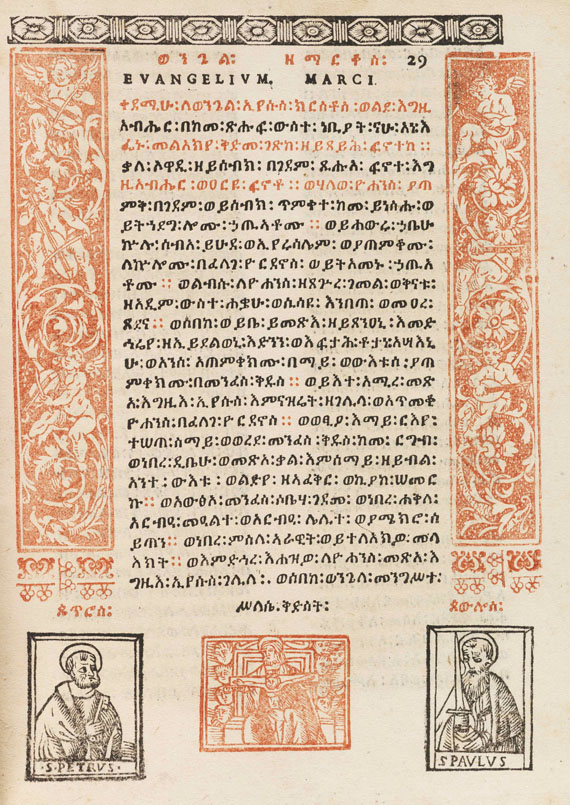 ወንጌል፡ ዘማርቆስ፡ 29
EVANGELIVM. MARCI
ቀደሚሁ፡ ለወንጌል፡ ኢየሱስ፡ ክርስቶስ፡ ወልደ፡ እግዚ
አብሔር፡ በከመ፡ ጽሑፍ፡ ውስተ፡ ነቢያት፡ ናሁ፡ አነ፡ እ
ፌኑ፡ መልአክየ፡ ቅድመ፡ ገጽከ፡ ዘይጸይሕ፡ ፍኖተከ ።
ቃለ፡ አዋዲ፡ ዘይሰብክ፡ በገዳም፡ ጺሑአ፡ ፍኖተ፡ እግ
ዚአብሔር፡ ወዐርዩ፡ ፍኖቶ ። ወሃለወ፡ ዮሐንስ፡ ያጠ
ምቅ፡ በገዳም፡ ወይሰብክ፡ ጥምቀተ፡ ከመ፡ ይነስሑ፡ ወ
ይትኀደግ፡ ሎሙ፡ ኃጢአቶሙ ። ወይሐውራ፡ ኃቤሁ
ኵሉ፡ ሰብአ፡ ይሁዳ፡ ወኢየሩሳሌም፡ ወያጠምቆሙ፡
ለኵሎሙ፡ በፈለገ፡ ዮርዳኖስ፡ ወይትአመኑ፡ ኃጢአ
ቶሙ ። ወልብሱ፡ ለዮሐንስ፡ ዘጸጕረ፡ ገመል፡ ወቅናቱ፡
ዘአዲም፡ ውስተ፡ ሐቋሁ፡ ወሲሳዩ፡ አንበጣ፡ ወመዐረ፡
ጸደና ። ወሰበከ፡ ወይቤ፡ ይመጽእ፡ ዘይጸንዐኒ፡ እምድ
ኅሬየ፡
ሁ፡ ወአንሰ፡ አጠምቀክሙ፡ በማይ፡ ወውእቱሰ፡ ያጠ
ምቀክሙ፡ በመንፈስ፡ ቅዱስ ። ወይእተ፡ አሚረ፡ መጽ
አ፡ እግዚእ፡ ኢየሱስ፡ እምናዝሬት፡ ዘገሊላ፡ ወአጥመቆ
ዮሐንስ፡ በፈለገ፡ ዮርዳኖስ ። ወወፂኦ፡ እማይ፡ ርእየ፡
ተሠጠ፡ ሰማይ፡ ወወረደ፡ መንፈስ፡ ቅዱስ፡ ከመ፡ ርግብ፡
ወነበረ፡ ዲቤሁ፡ ወመጽአ፡ ቃል፡ እምሰማይ፡ ዘይብል፡
አንተ፡ ውእቱ፡ ወልድየ፡ ዘአፈቅር፡ ወኪያከ፡ ሠመር
ኩ ። ወአውፅኦ፡ መንፈስ፡ ሶቤሃ፡ ገዳመ፡ ወነበረ፡ ሐቅለ፡
አርብዓ፡ መዓልተ፡ ወአርብዓ፡ ሌሊተ፡ ወያሜክሮ፡ ሰ
ይጣን ። ወነበረ፡ ምስለ፡ አራዊት፡ ወይተለአክዎ፡ መላ
እክት ። ወእምድኅረ፡ አሐዝዎ፡ ለዮሐንስ፡ መጽአ፡ እ
ግዚእ፡ ኢየሱስ፡ ገሊላ ። ወሰበከ፡ ወንጌለ፡ መንግሥተ፡
ሥላሴ. ቅድስት፡
ጴጥሮስ፡
ጳውሎስ፡
S. PETRVS
S PAVLVS